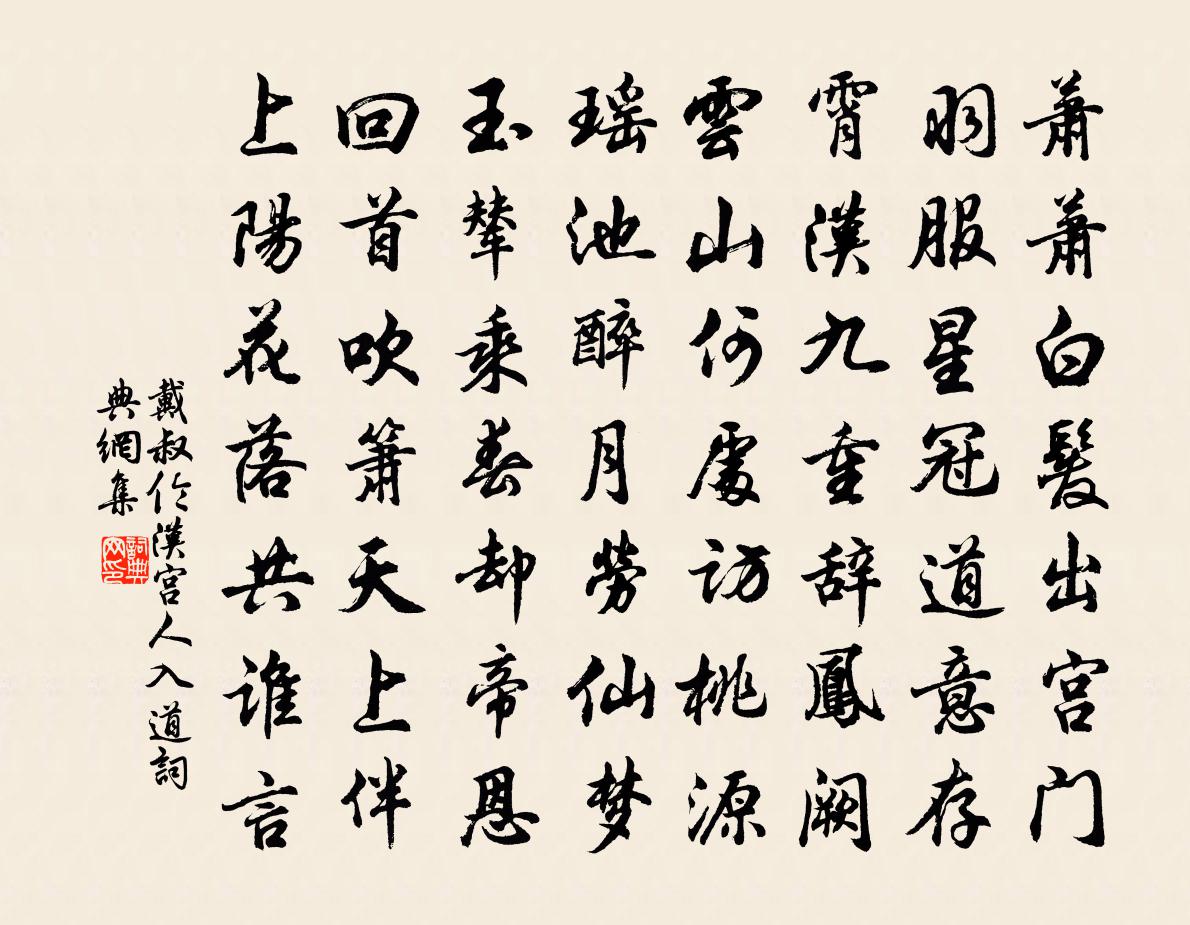 萧萧白髮出宫门
羽服星冠道意存
霄漢九重辞鳳阙
雲山何處访桃源
瑶池醉月劳仙梦
玉辇乘春却帝恩
回首吹箫天上伴
上陽花落共谁言
戴叔伦漢宫人入道詞
典網集
詞典网印